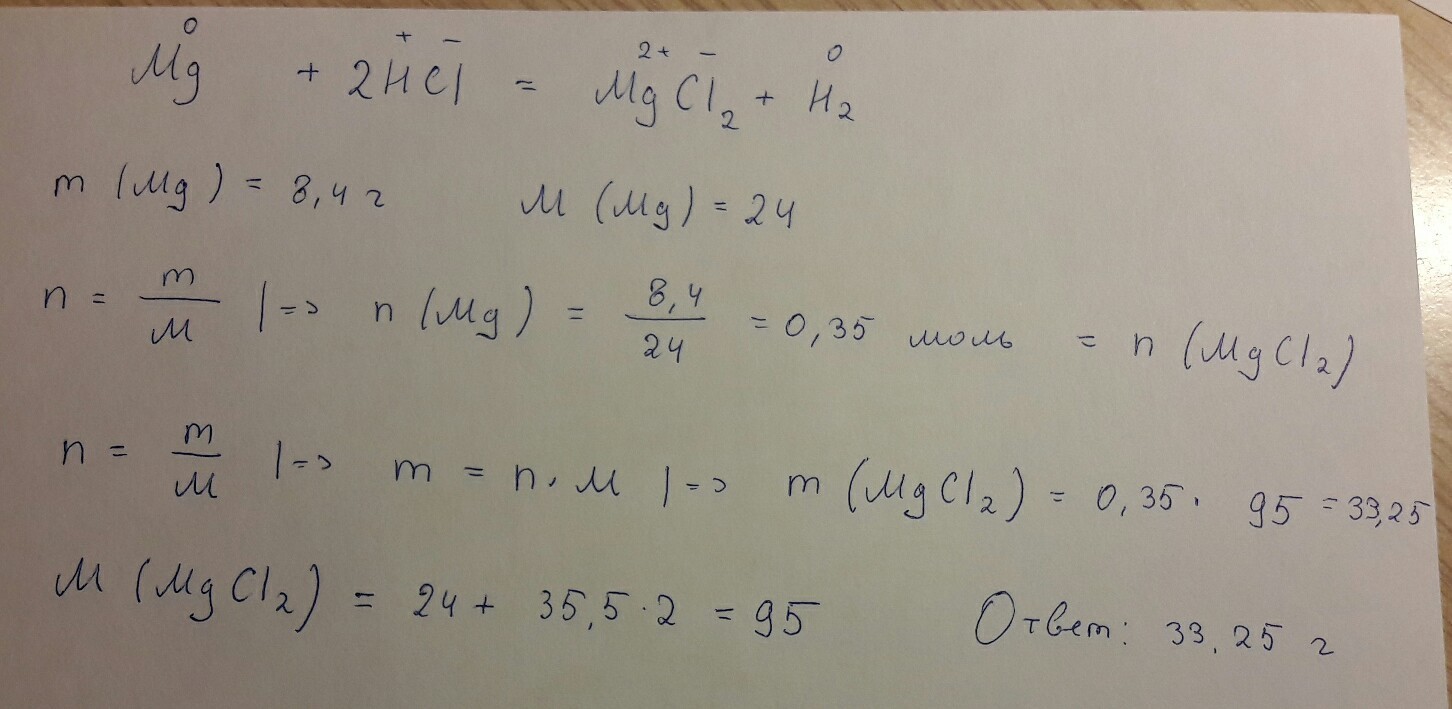 Mg⁰ + 2H⁺Cl⁻ = Mg²⁺Cl⁻₂ + H₂⁰
m (Mg) = 8,4 г M (Mg) = 24
n = m/M |=> n (Mg) = 8,4/24 = 0,35 моль = n (MgCl₂)
n = m/M |=> m = n · M |=> m (MgCl₂) = 0,35 · 95 = 33,25
M (MgCl₂) = 24 + 35,5 · 2 = 95 Ответ: 33,25 г